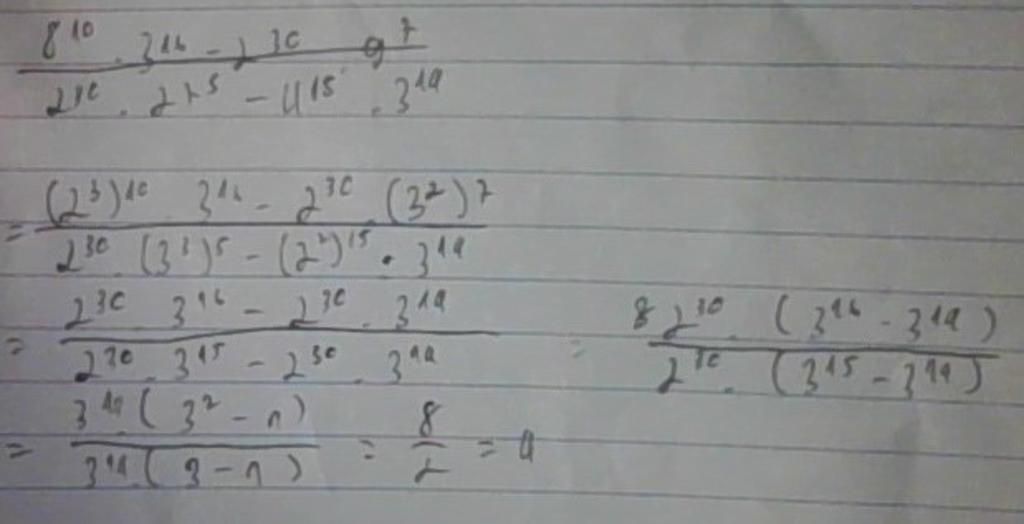 8^10 . 3^16 - 2^30 . 9^7 / 2^30 . 27^5 - 4^15 . 3^14
= (2^3)^10 . 3^16 - 2^30 . (3^2)^7 / 2^30 . (3^3)^5 - (2^2)^15 . 3^14
= 2^30 . 3^16 - 2^30 . 3^14 / 2^30 . 3^15 - 2^30 . 3^14 = 8 2^30 . (3^16 - 3^14) / 2^30 . (3^15 - 3^14)
= 3^14 . (3^2 - 1) / 3^14 . (3 - 1) = 8 / 2 = 4